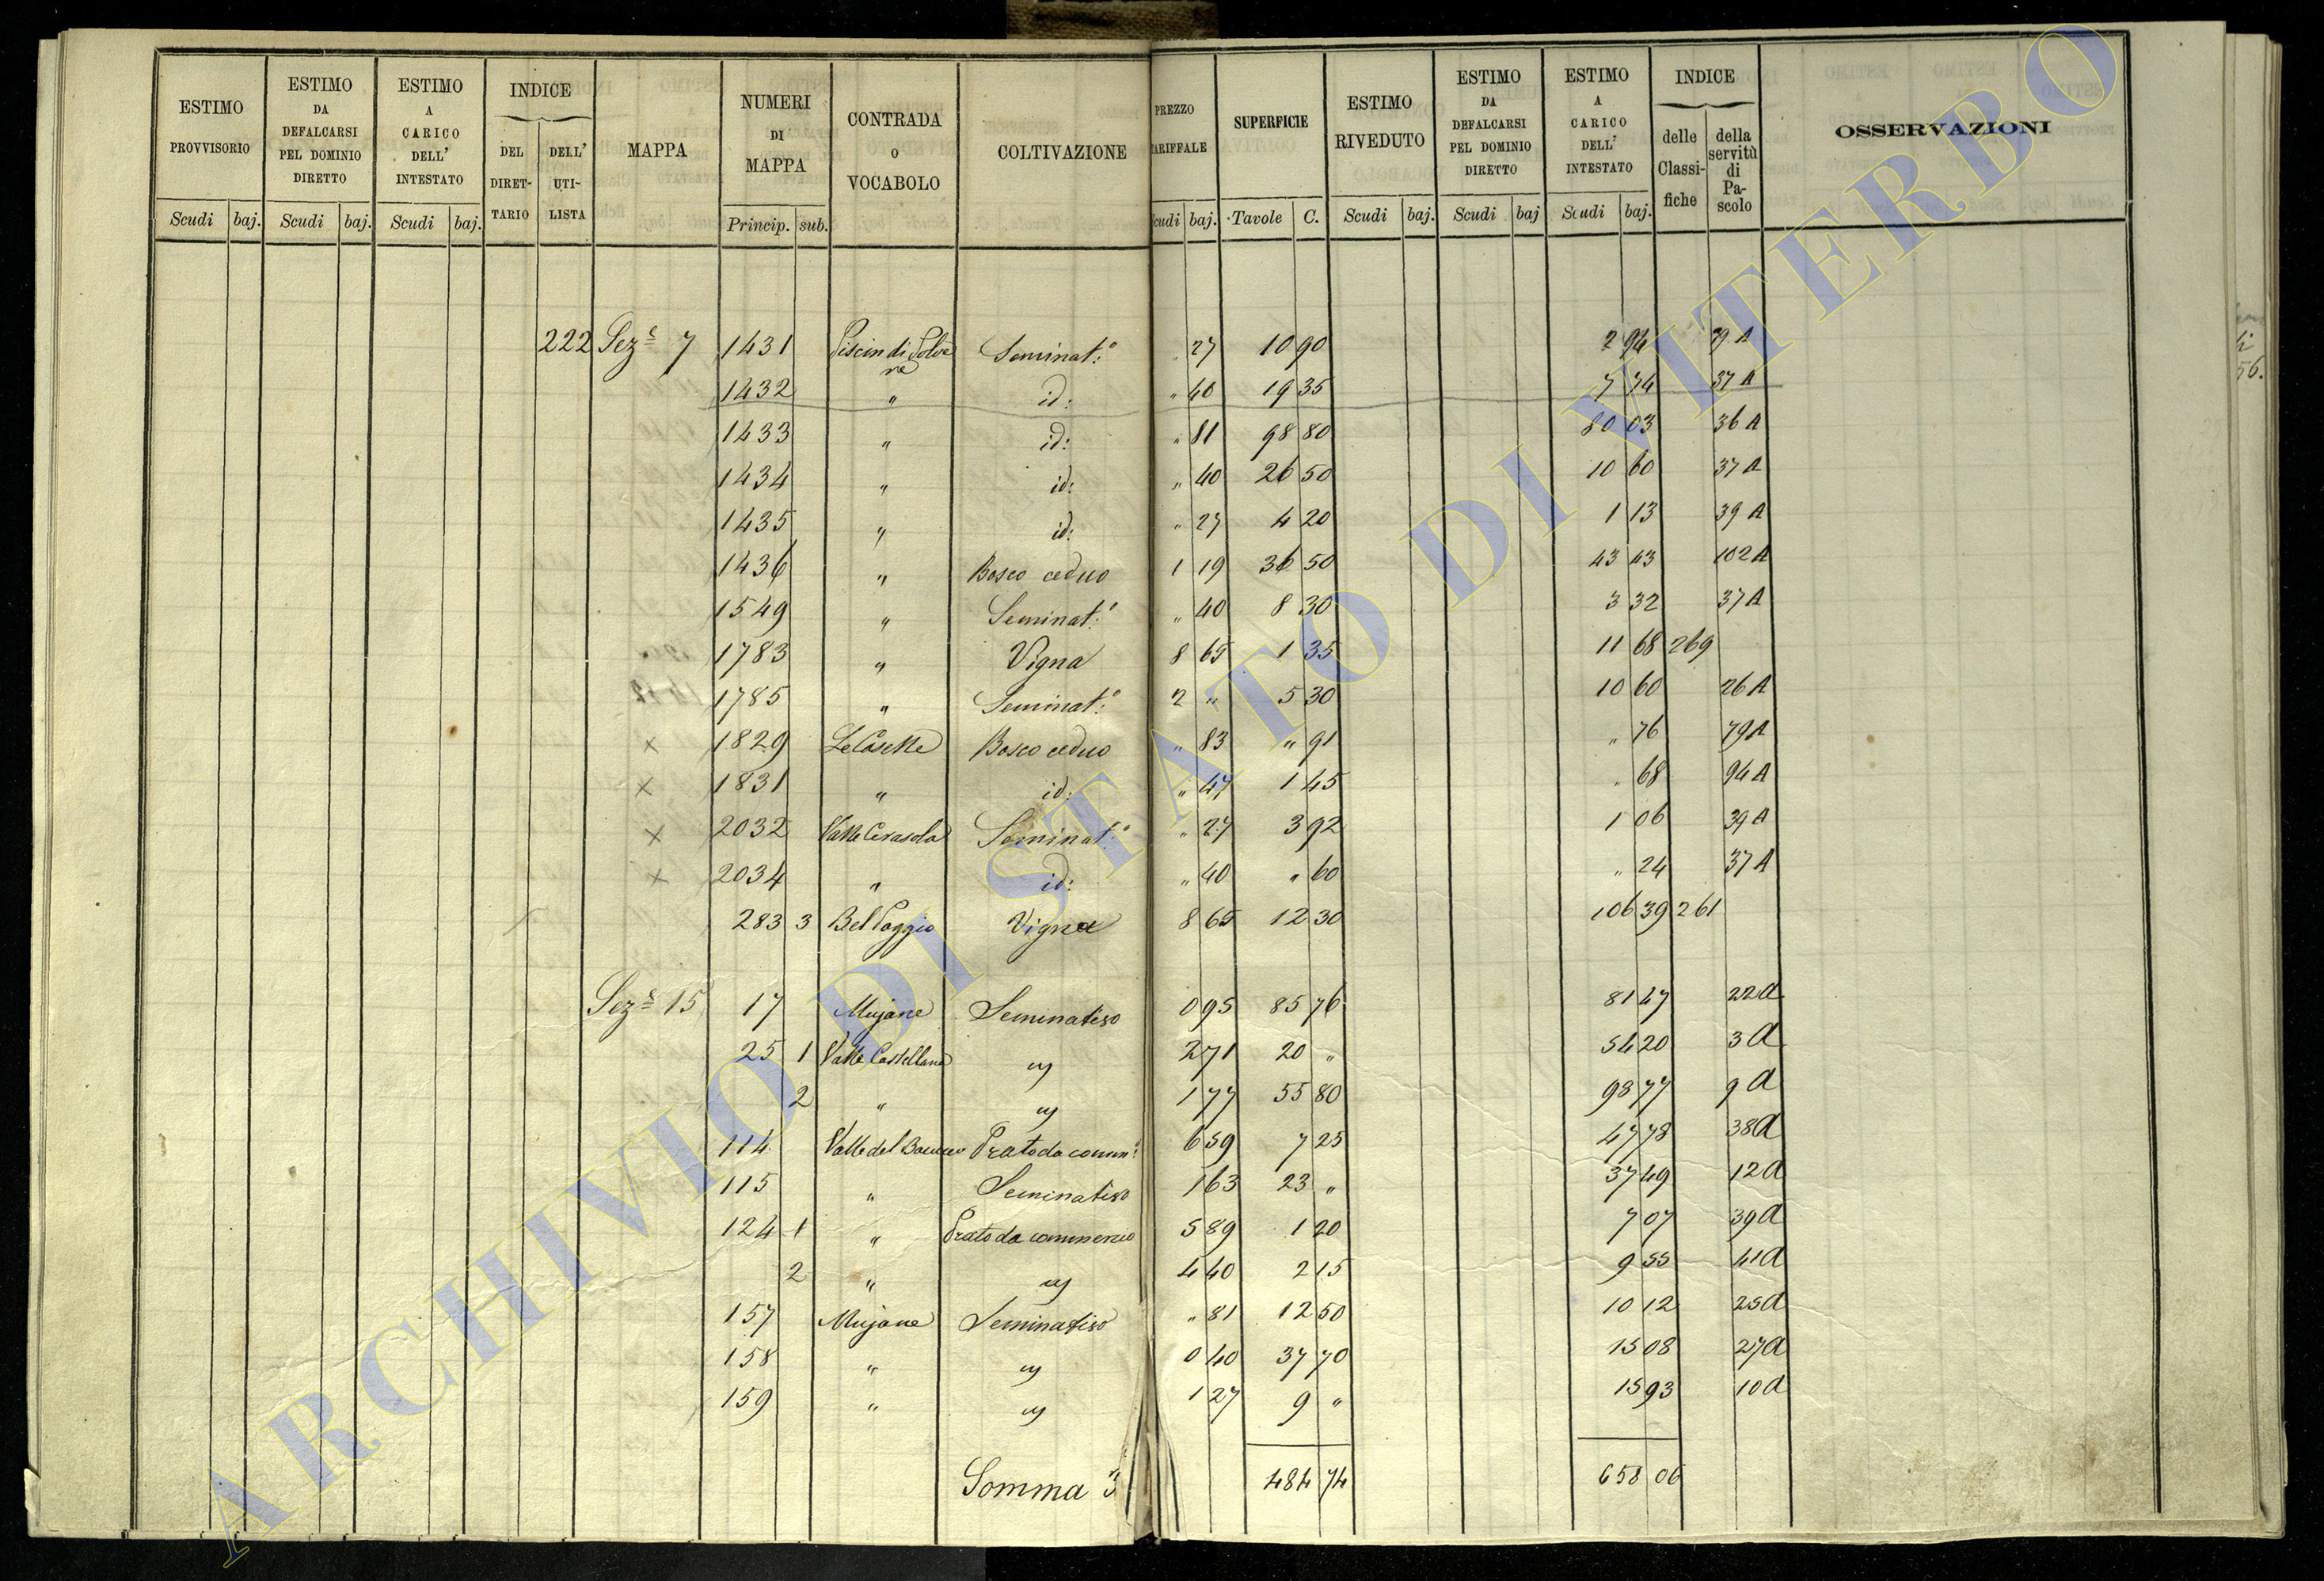 ESTIMO PROVVISORIO | ESTIMO DA DEFALCARSI PEL DOMINIO DIRETTO | ESTIMO A CARICO DELL' INTESTATO | INDICE | MAPPA | NUMERI DI MAPPA | CONTRADA O VOCABOLO | COLTIVAZIONE | PREZZO TARIFFALE | SUPERFICIE | ESTIMO RIVEDUTO | ESTIMO DA DEFALCARSI PEL DOMINIO DIRETTO | ESTIMO A CARICO DELL' INTESTATO | INDICE | OSSERVAZIONI
DEL DIRETTARIO | DELL' UTILISTA | delle Classifiche | della servitù di Pascolo
Scudi | baj. | Scudi | baj. | Scudi | baj. | Princip. | sub. | Scudi | baj. | Tavole | C. | Scudi | baj. | Scudi | baj | Scudi | baj.
222 Sez.e 7 1431 Seminat:o " 27 10 90 2 94 39 A
1432 " id: " 40 19 35 7 74 37 A
1433 " id: " 81 98 80 80 03 36 A
1434 " id: " 40 26 50 10 60 37 A
1435 " id: " 27 4 20 1 13 39 A
1436 " Bosco ceduo 1 19 36 50 43 43 102 A
1549 " Seminat:o " 40 8 30 3 32 37 A
1783 " Vigna 8 65 1 35 11 68 269
1785 " Seminat:o 2 " 5 30 10 60 26 A
x 1829 Le Casette Bosco ceduo " 83 " 91 " 76 79 A
x 1831 " id: " 47 1 45 " 68 94 A
x 2032 Valle Cerasola Seminat:o " 27 3 92 1 06 39 A
x 2034 " id: " 40 " 60 " 24 37 A
283 3 Bel Poggio Vigna 8 65 12 30 106 39 261
Sez.e 15 17 Mujane Seminativo 0 95 85 76 81 47 22 A
25 1 Valle Castellana " 2 71 20 " 54 20 3 A
2 " " 1 77 55 80 98 77 9 A
114 Valle del Prato da comm: 6 59 7 25 47 78 38 A
115 " Seminativo 1 63 23 " 37 49 12 A
124 1 " Prato da commercio 5 89 1 20 7 07 39 A
2 " " 4 40 2 15 9 55 41 A
157 Mujane Seminativo " 81 12 50 10 12 25 A
158 " " 0 40 37 70 15 08 27 A
159 " " 1 27 9 " 15 93 10 A
Somma 484 74 658 06
ARCHIVIO DI STATO DI VITERBO